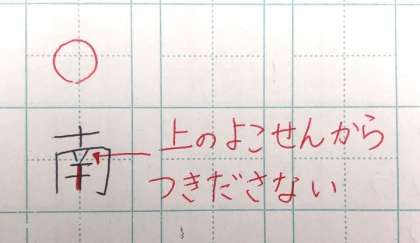 南
上のよこせんから
つきださない